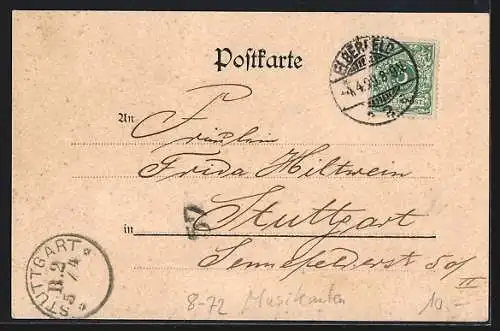 Postkarte
ELBERFELD
An
Fräulein
Frida Hiltwein
Stuttgart
in
Sennefelderstr 50/II
STUTTGART
B.2
5/4
8-72 Musikanten
10.-